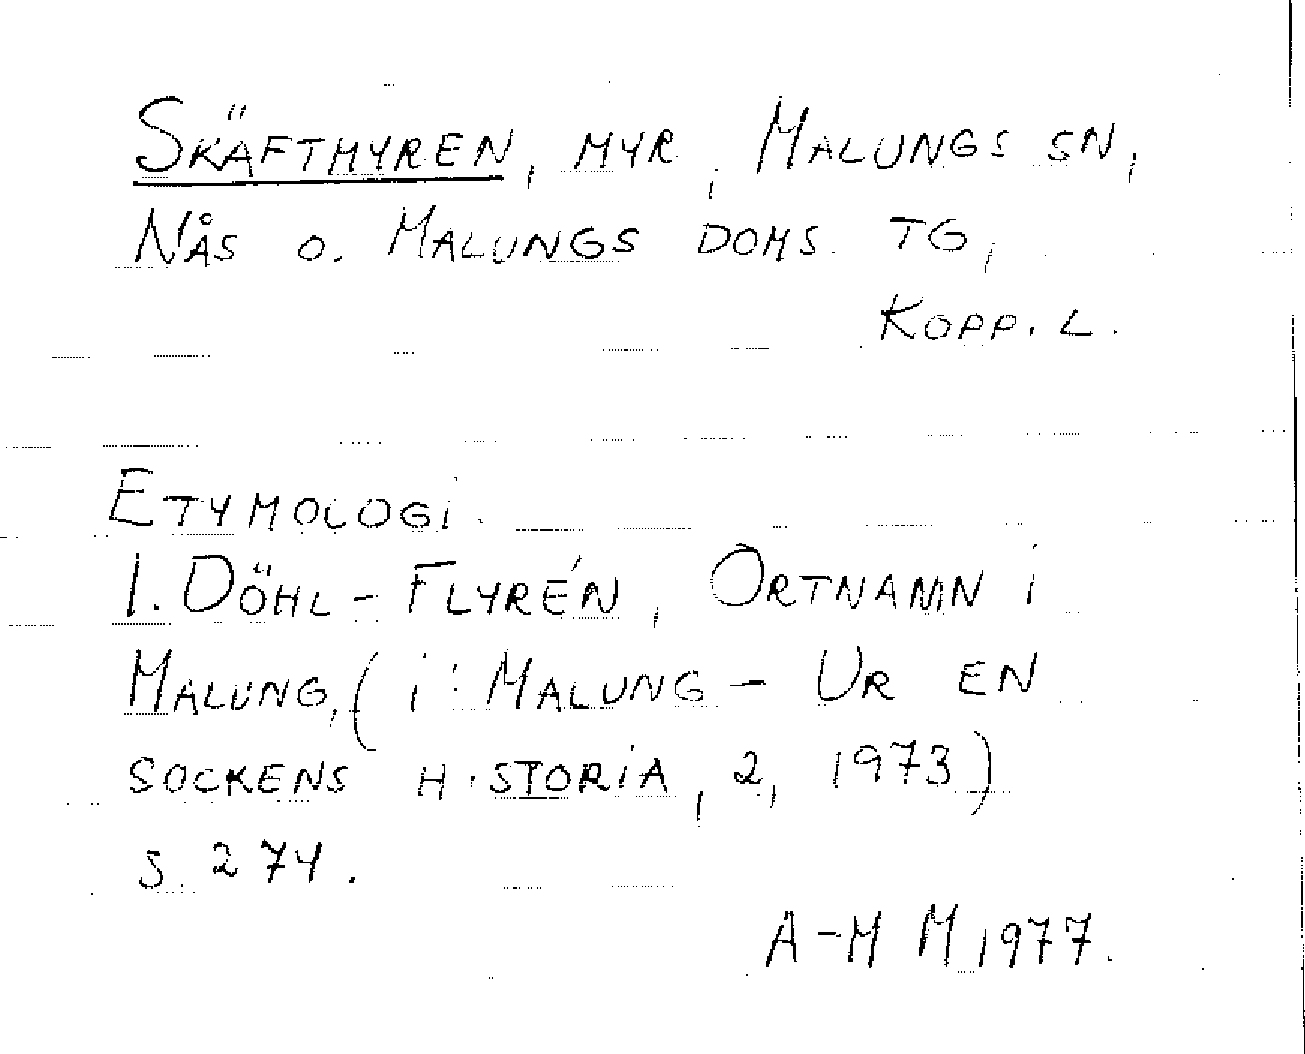 SKÄFTMYREN, MYR, MALUNGS SN,
NÅS O. MALUNGS DOMS. TG,
KOPP. L.
ETYMOLOGI.
I. DÖHL-FLYRÉN, ORTNAMN I
MALUNG, (I: MALUNG - UR EN
SOCKENS HISTORIA, 2, 1973)
S. 274.
A-M M 1977.